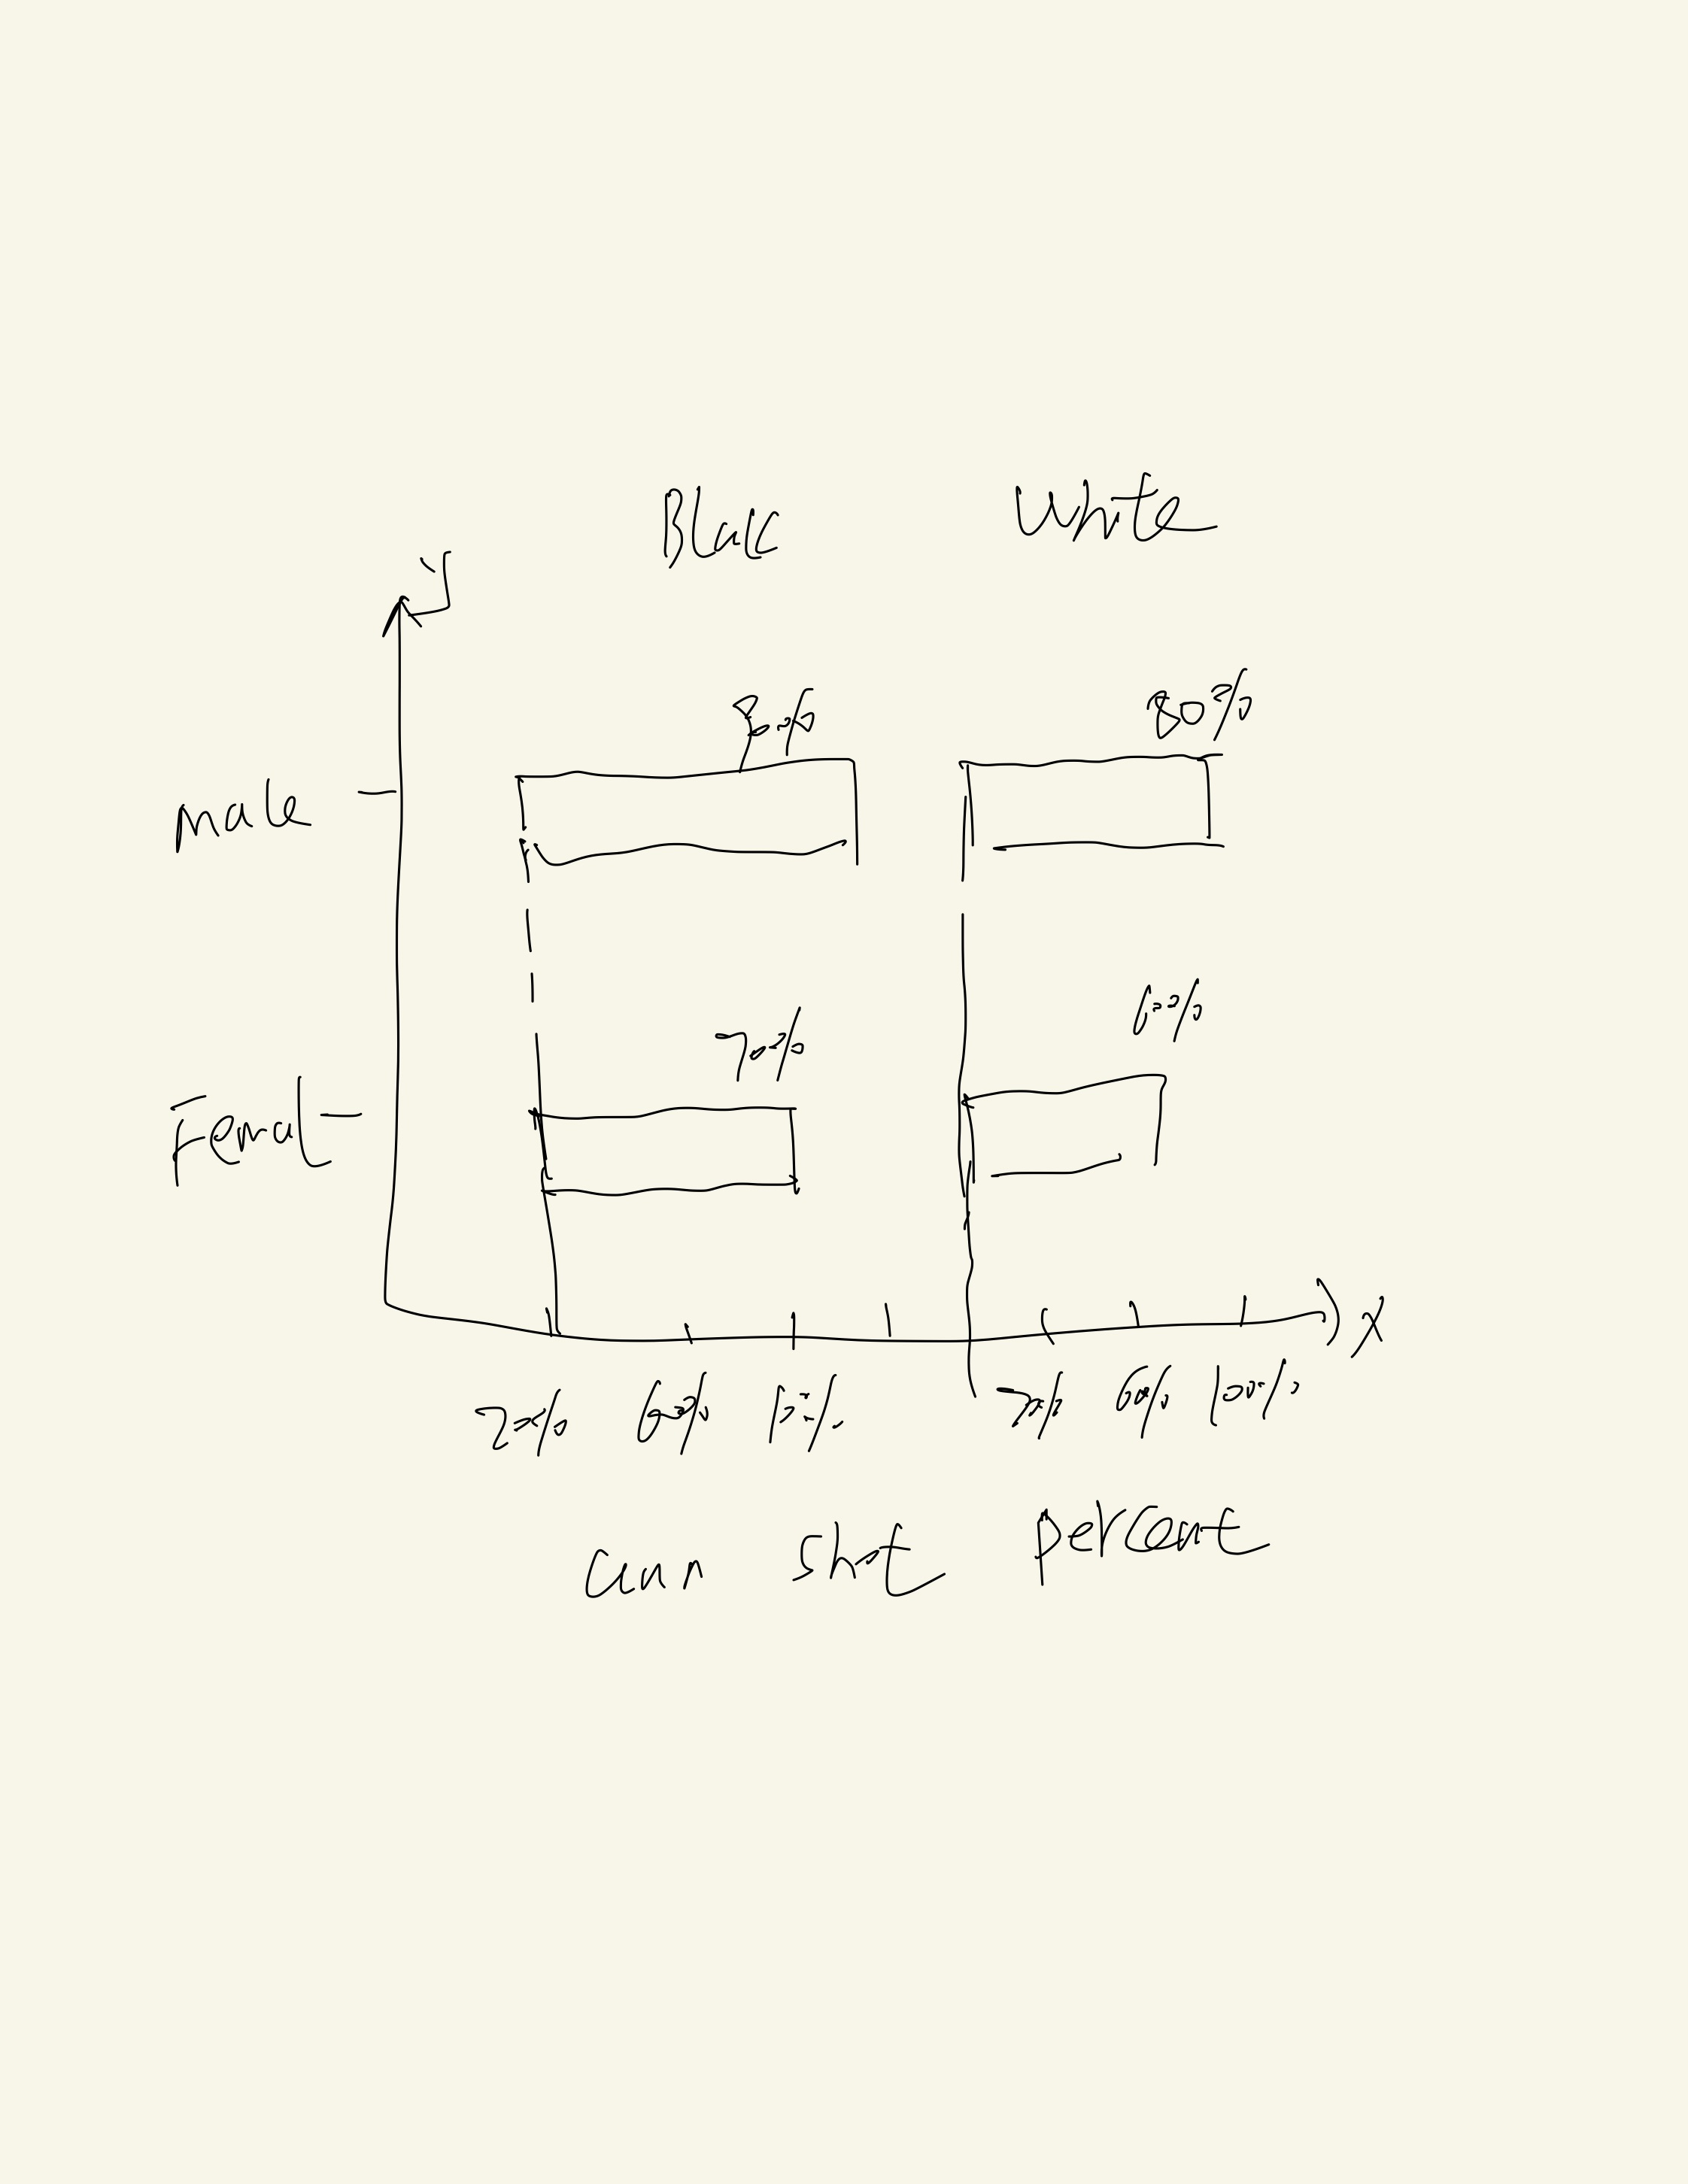 Black White
Y
80% 80%
male
70% 60%
Femal
20% 60% 100% 20% 60% 100%
X
Gun Shot percent